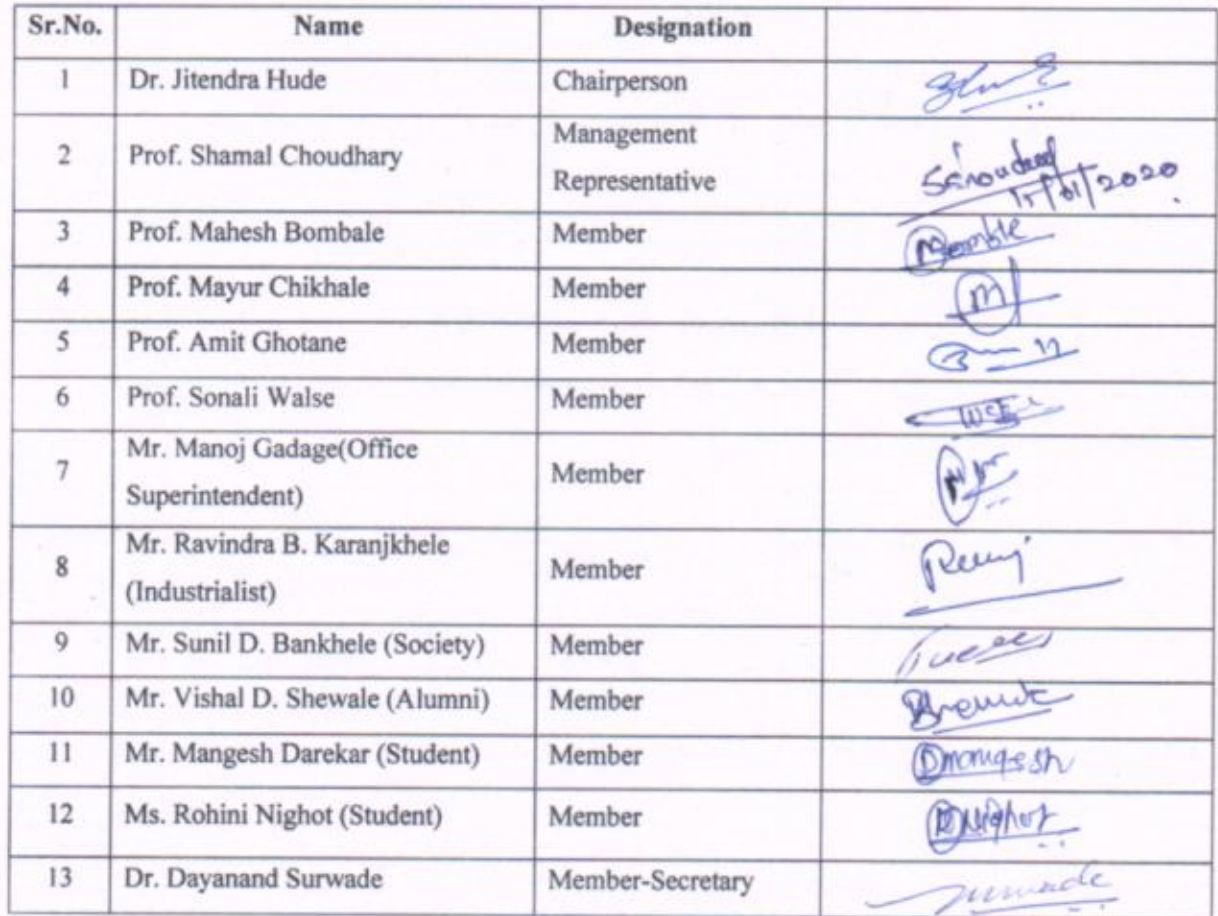 Sr.No. Name Designation
1 Dr. Jitendra Hude Chairperson
2 Prof. Shamal Choudhary Management
Representative
15/01/2020
3 Prof. Mahesh Bombale Member
4 Prof. Mayur Chikhale Member
M
5 Prof. Amit Ghotane Member
6 Prof. Sonali Walse Member
7 Mr. Manoj Gadage(Office
Superintendent) Member
8 Mr. Ravindra B. Karanjkhele
(Industrialist) Member
9 Mr. Sunil D. Bankhele (Society) Member
10 Mr. Vishal D. Shewale (Alumni) Member
11 Mr. Mangesh Darekar (Student) Member Dmangesh
12 Ms. Rohini Nighot (Student) Member RNighot
13 Dr. Dayanand Surwade Member-Secretary Surwade